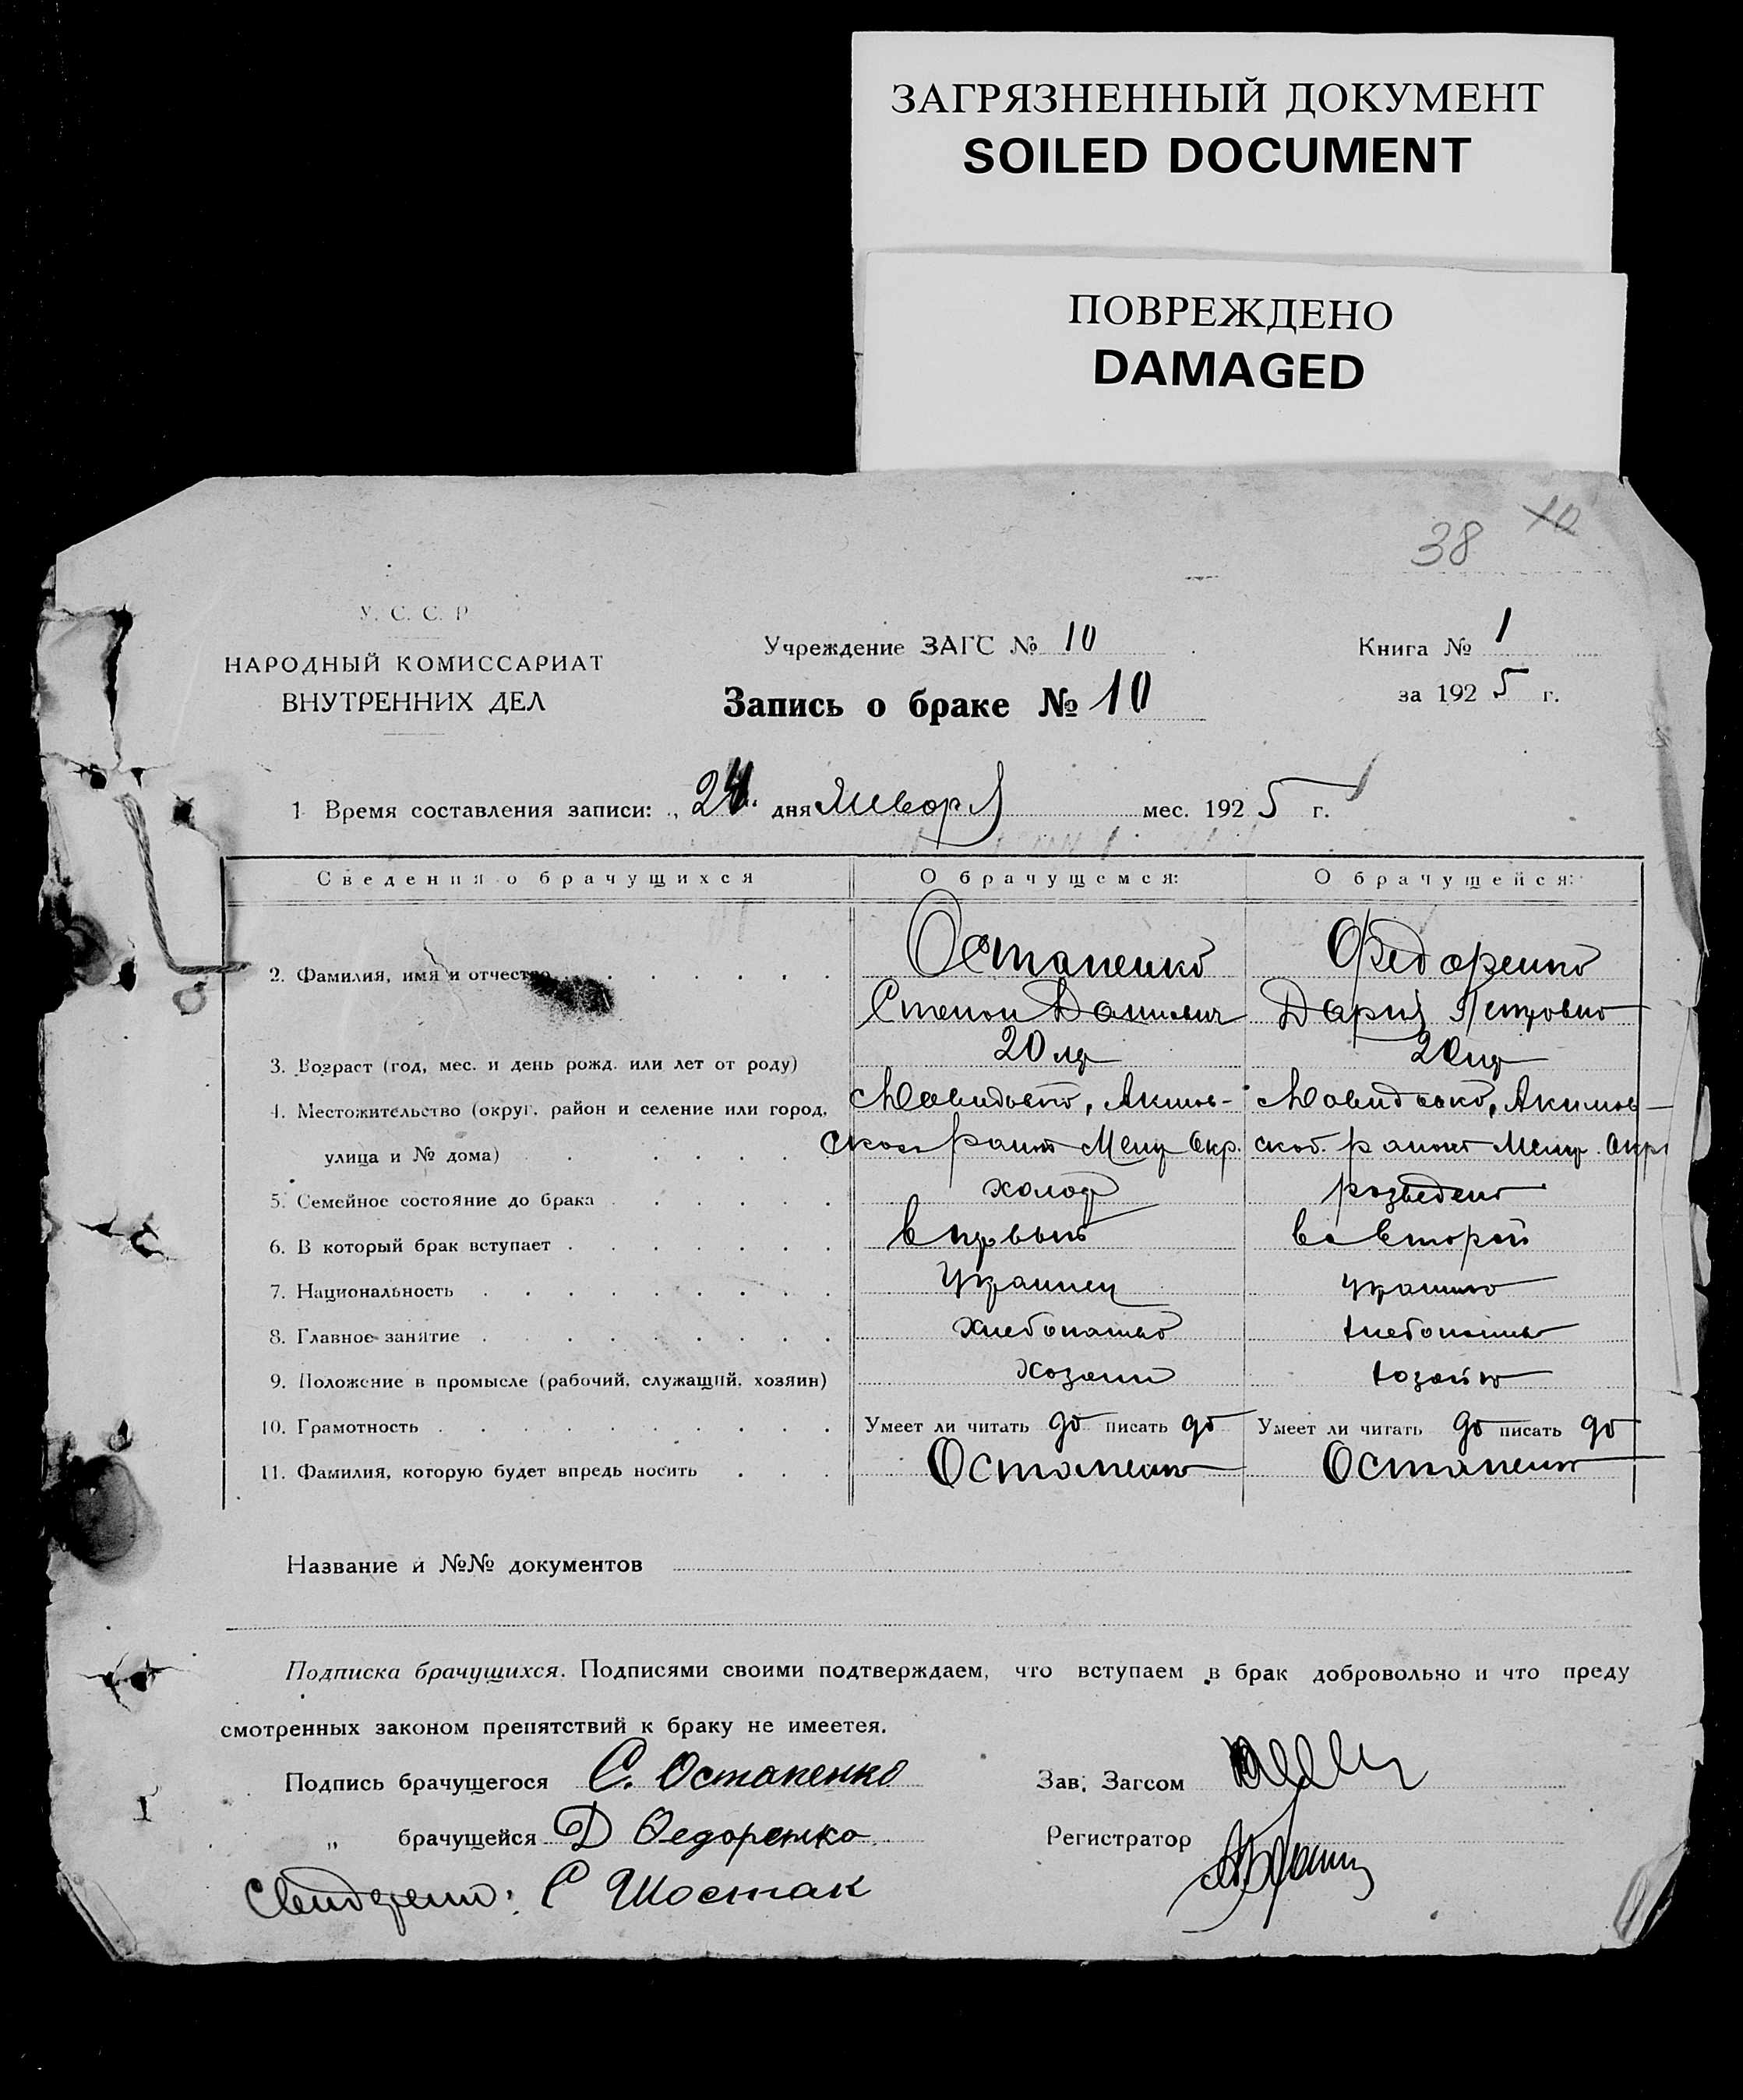 ЗАГРЯЗНЕННЫЙ ДОКУМЕНТ
SOILED DOCUMENT
ПОВРЕЖДЕНО
DAMAGED
38 10
У. С. С. Р
НАРОДНЫЙ КОМИССАРИАТ
ВНУТРЕННИХ ДЕЛ
Учреждение ЗАГС № 10
Запись о браке № 10
Книга № 1
за 1925 г.
1 Время составления записи: „ 24 дня Января мес. 1925 г.
Сведения о брачущихся О брачущемся: О брачущейся:
2. Фамилия, имя и отчество Остапенко Федоренко
Степан Дария Петровна
3. Возраст (год, мес. и день рожд. или лет от роду) 20 лет 20 лет
4. Местожительство (округ, район и селение или город, Давидовка, Акимов- Давидовка, Акимов-
улица и № дома) ского района Мелит Окр. ског. района Мелит. Окр
5. Семейное состояние до брака холост розведена
6. В который брак вступает в первый во второй
7. Национальность Украинец украинка
8. Главное занятие Хлебопашество хлебопашество
9. Положение в промысле (рабочий, служащий, хозяин) Хозяин хозяйка
10. Грамотность Умеет ли читать да писать да Умеет ли читать да писать да
11. Фамилия, которую будет впредь носить Остапенко Остапенко
Название и №№ документов
Подписка брачущихся. Подписями своими подтверждаем, что вступаем в брак добровольно и что преду
смотренных законом препятствий к браку не имеетея.
Подпись брачущегося С. Остапенко Зав. Загсом
„ брачущейся Д Федоренко Регистратор
Свидетели: С Шостак
1